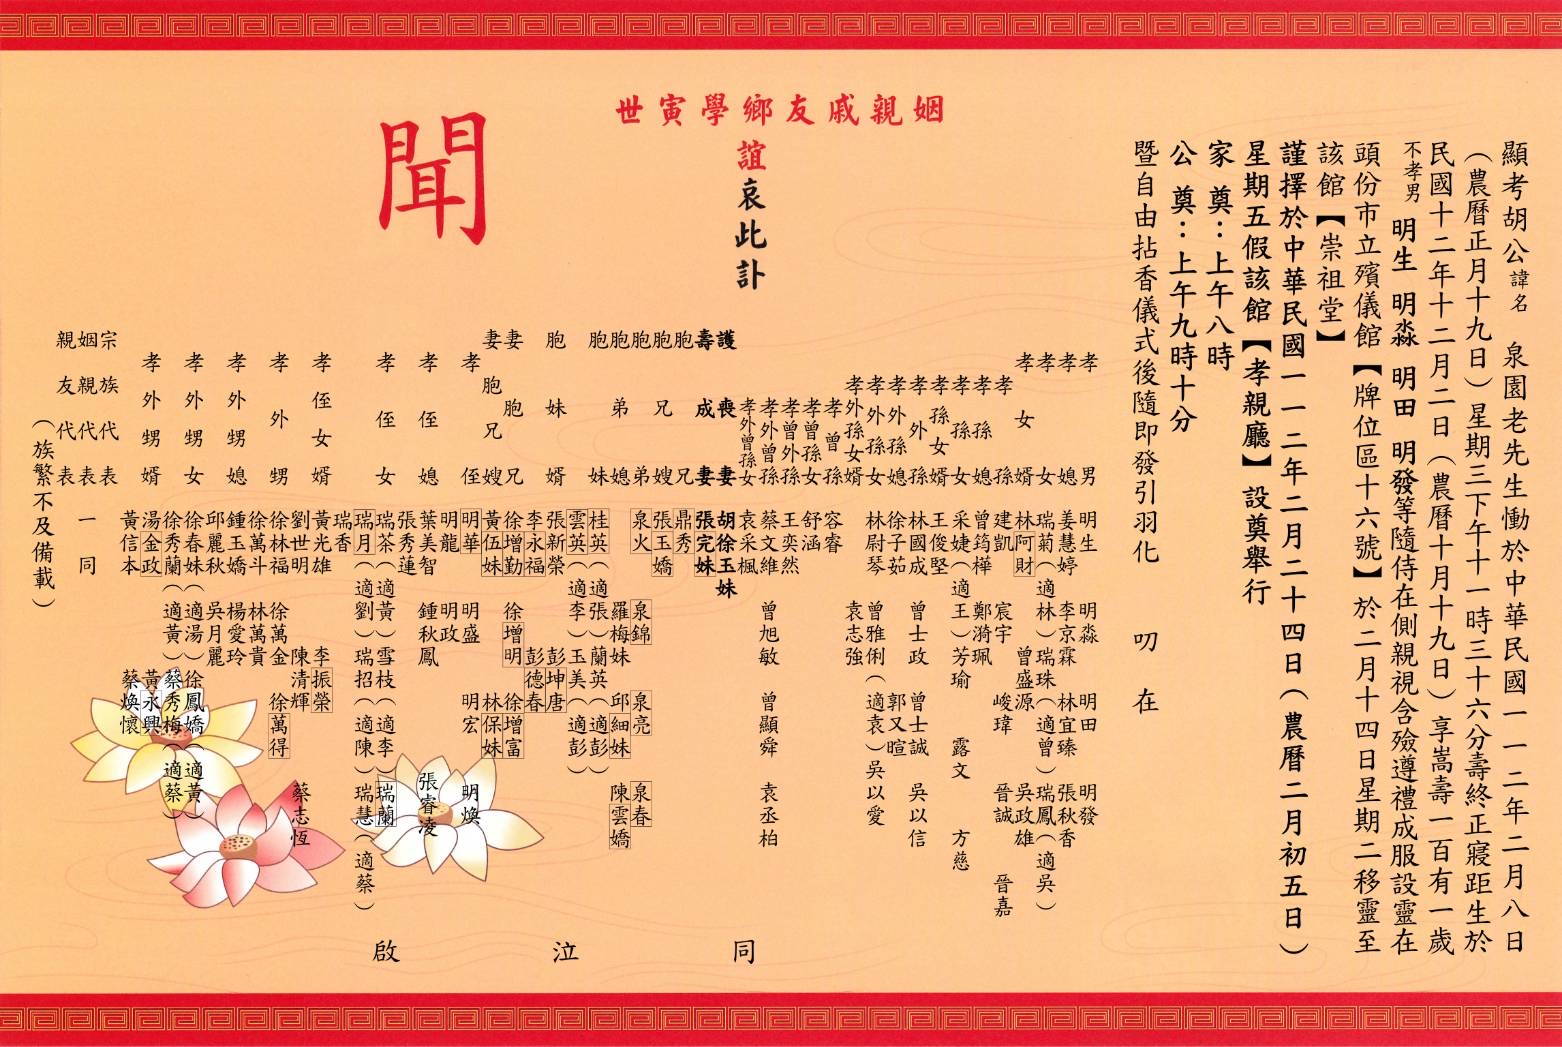 顯考胡公諱名 泉園老先生慟於中華民國一一二年二月八日
（農曆正月十九日）星期三下午十一時三十六分壽終正寢距生於
民國十二年十二月二日（農曆十月十九日）享嵩壽一百有一歲
不孝男 明生 明淼 明田 明發等隨侍在側親視含殮遵禮成服設靈在
頭份市立殯儀館【牌位區十六號】於二月十四日星期二移靈至
該館【崇祖堂】
謹擇於中華民國一一二年二月二十四日（農曆二月初五日）
星期五假該館【孝親廳】設奠舉行
家 奠：上午八時
公 奠：上午九時十分
暨自由拈香儀式後隨即發引羽化 叨 在
姻親戚友鄉學寅世
誼哀此訃
聞
孝男 明生 明淼 明田 明發
孝媳 姜慧婷 李京霖 林宜臻 張秋香
孝女 瑞菊（適林）瑞珠（適曾）瑞鳳（適吳）
孝女婿 林阿財 曾盛源 吳政雄
孝孫 建凱 宸宇 峻瑋 晉誠 晉嘉
孝孫媳 曾筠樺 鄭漪珮
孝孫女 采婕（適王）芳瑜 露文 方慈
孝孫女婿 王俊堅
孝外孫 林國成 曾士政 曾士誠 吳以信
孝外孫媳 徐子茹 郭又暄
孝外孫女 林尉琴 曾雅俐（適袁）吳以愛
孝外孫女婿 袁志強
孝曾孫 容睿
孝曾孫女 舒涵
孝曾外孫 王奕然
孝外曾孫 蔡文維 曾旭敏 曾顯舜 袁丞柏
孝外曾孫女 袁采楓
護喪妻 胡徐玉妹
壽成妻 張完妹
胞兄 鼎秀
胞兄嫂 張玉嬌
胞弟 泉火 泉錦 泉亮 泉春
胞弟媳 羅梅妹 邱細妹 陳雲嬌
胞妹 桂英（適張）蘭英（適彭）
雲英（適李）玉美（適彭）
胞妹婿 張新榮 彭坤唐
李永福 彭德春
妻胞兄 徐增勤 徐增明 徐增富
妻胞兄嫂 黃伍妹 林保妹
孝侄 明華 明盛 明宏 明煥
明龍 明政
孝侄媳 葉美智 鍾秋鳳 張睿凌
張秀蓮
孝侄女 瑞茶（適黃）雪枝（適李）瑞蘭
瑞月（適劉）瑞招（適陳）瑞慧（適蔡）
瑞香
孝侄女婿 黃光雄 李振榮
劉世明 陳清輝 蔡志恆
孝外甥 徐林福 徐萬金 徐萬得
徐萬斗 林萬貴
孝外甥媳 鍾玉嬌 楊愛玲
邱麗秋 吳月麗
孝外甥女 徐春妹（適湯）徐鳳嬌（適黃）
徐秀蘭（適黃）蔡秀梅（適蔡）
孝外甥婿 湯金政 黃永興
黃信本 蔡煥懷
宗族代表
姻親代表 一同
親友代表
（族繁不及備載）
同 泣 啟